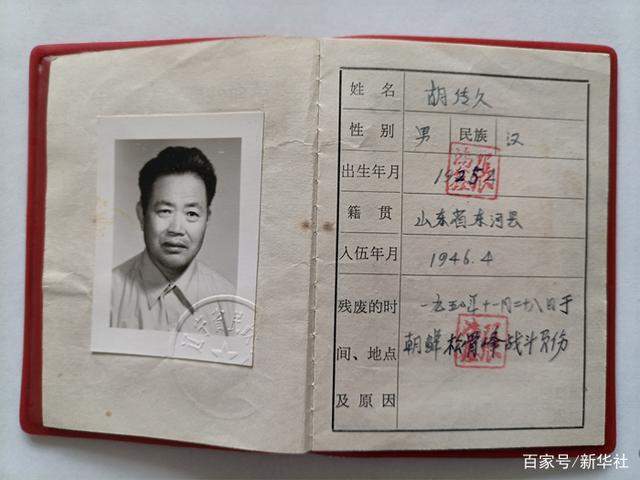 姓名 胡传久
性别 男 民族 汉
出生年月
籍贯 山东省东河县
入伍年月 1946.4
残废的时 一九五〇年十一月二十八日于
间、地点 朝鲜松骨峰战斗负伤
及原因
百家号/新华社